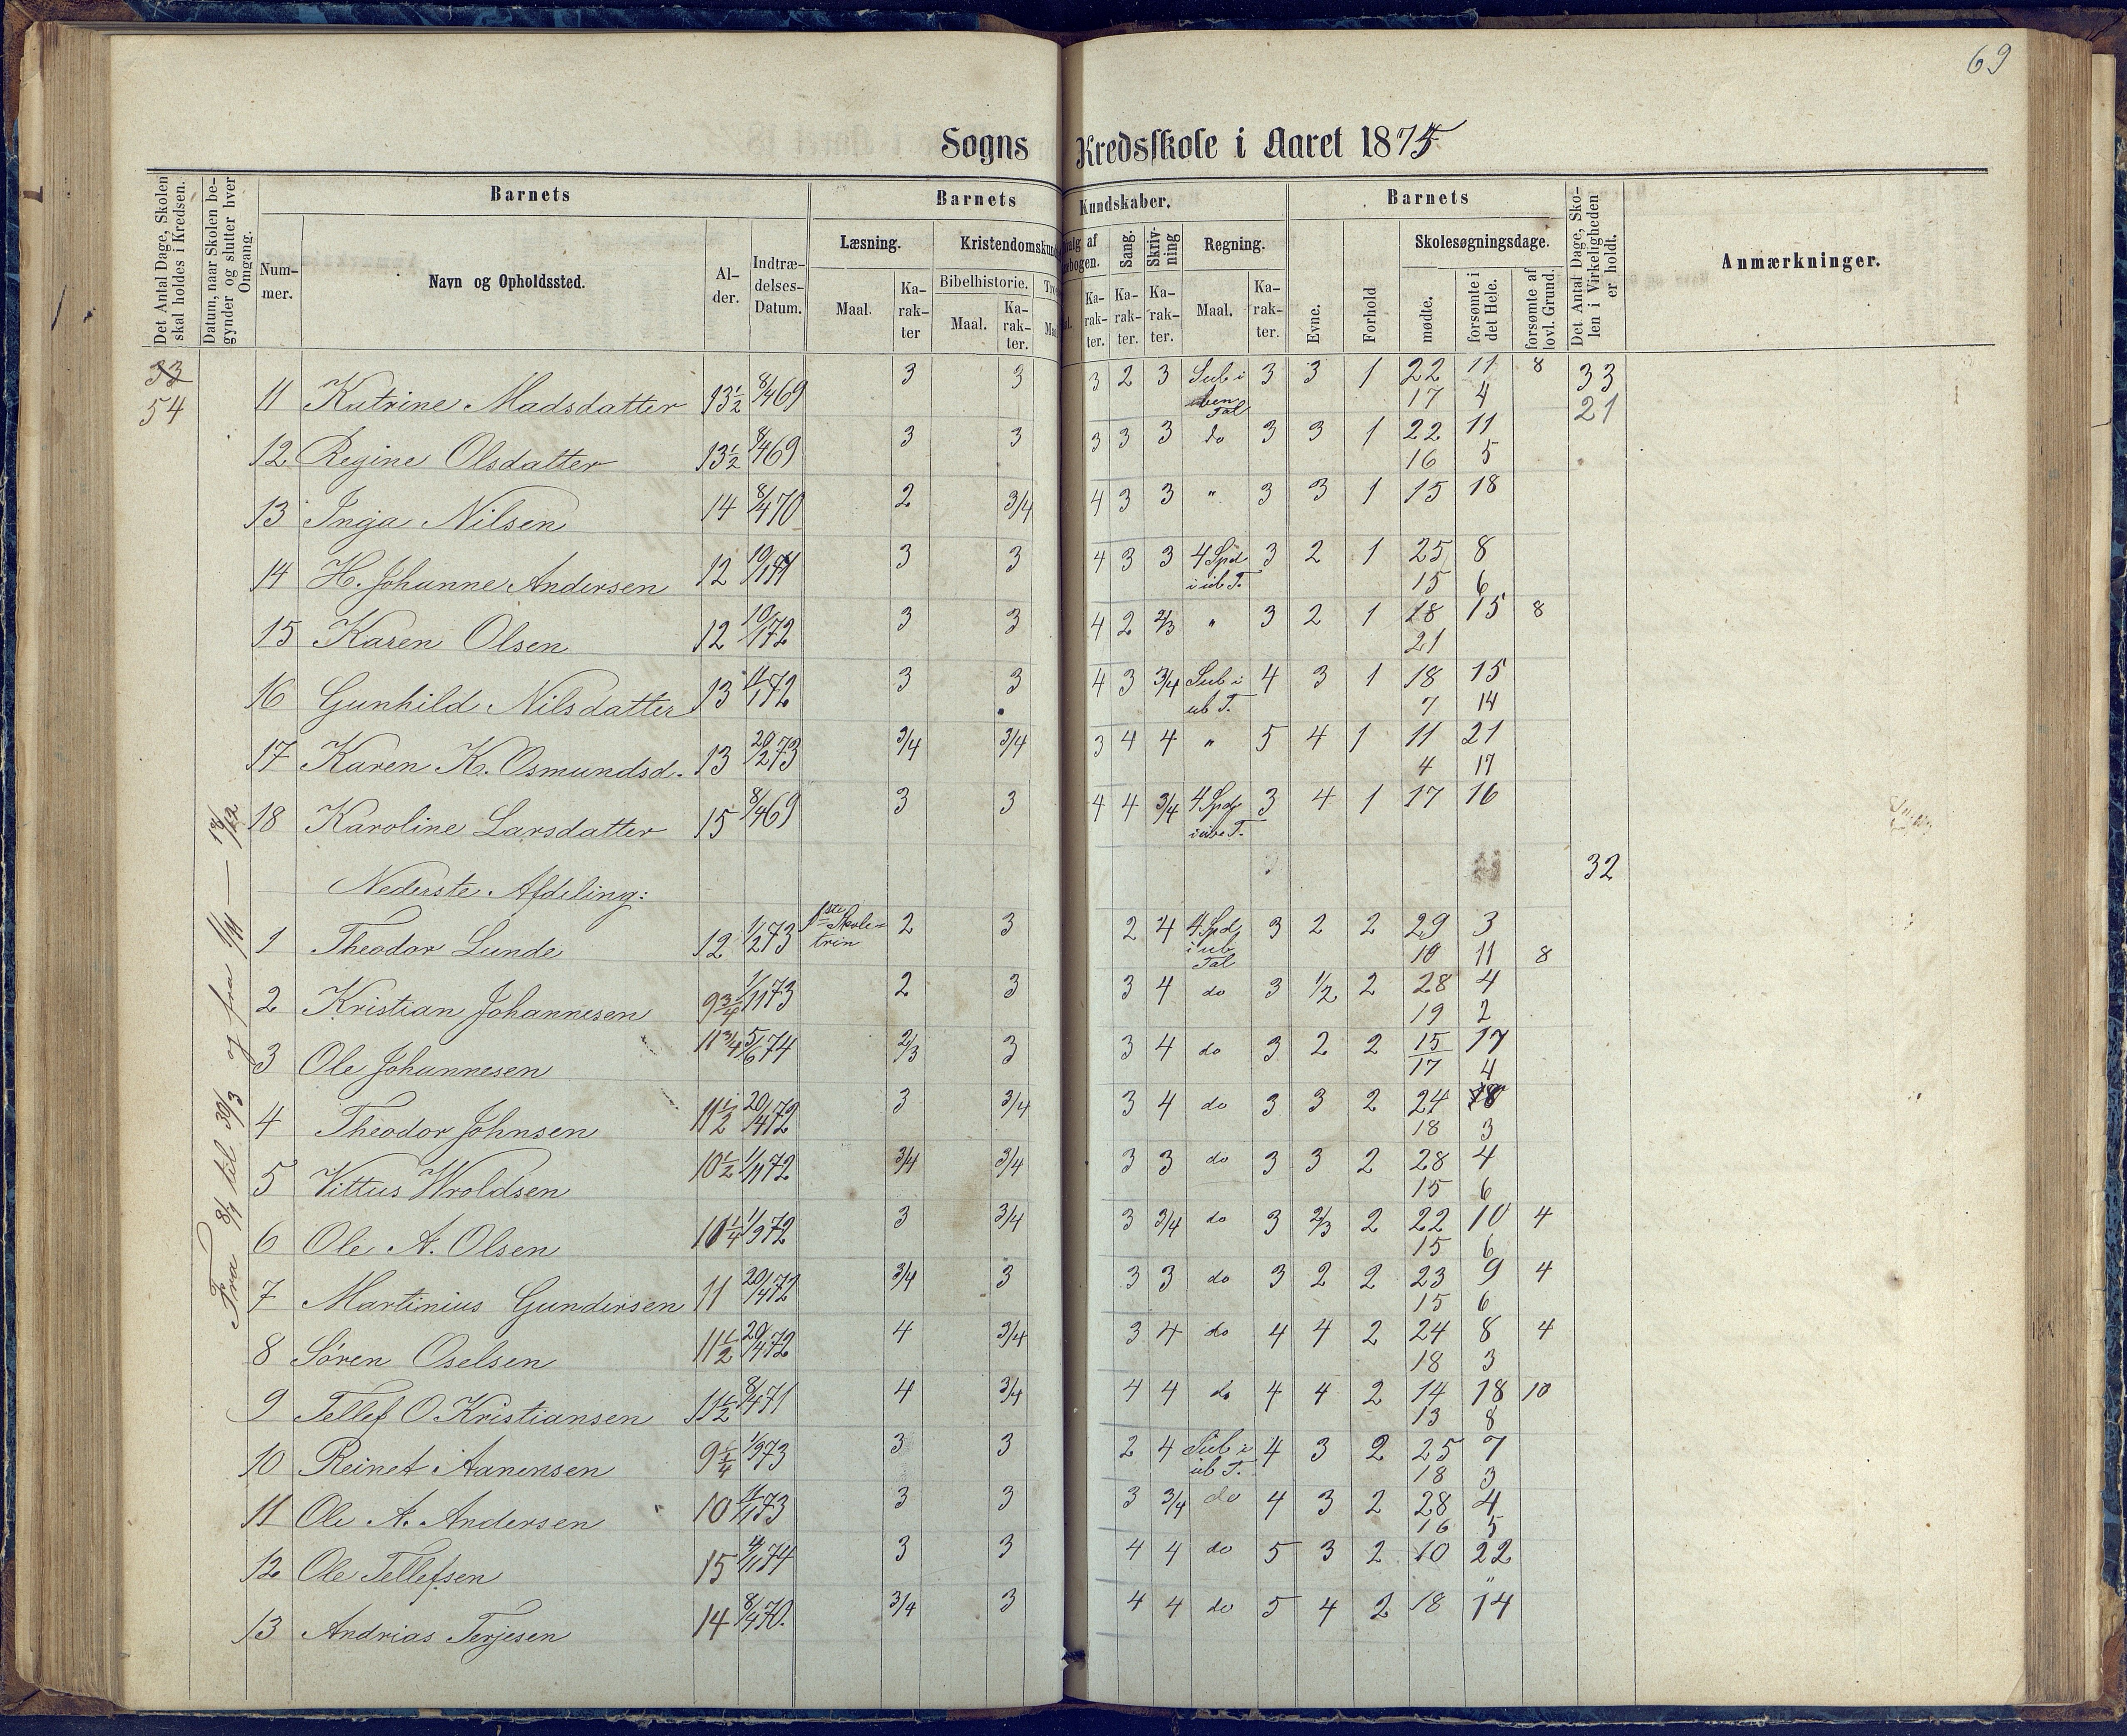 69
Sogns Kredsskole i Aaret 1875
Det Antal Dage, Skolen skal holdes i Kredsen.
Datum, naar Skolen begynder og slutter hver Omgang.
Barnets
Nummer.
Navn og Opholdssted.
Alder.
Indtrædelses-Datum.
Barnets Kundskaber.
Læsning.
Maal.
Karakter
Kristendomskund
Bibelhistorie.
Maal.
Karakter.
Tro
Maa
valg af
ebogen.
Karakter.
Sang.
Karakter.
Skrivning
Karakter.
Regning.
Maal.
Karakter.
Barnets
Evne.
Forhold
Skolesøgningsdage.
mødte.
forsømte i det Hele.
forsømte af lovl. Grund.
Det Antal Dage, Skolen i Virkeligheden er holdt.
Anmærkninger.
33
54
Fra 8/1 til 30/3 og fra 1/11 — 18/12
11 Katrine Madsdatter 13½ 8/4 69 3 3 3 2 3 Sub i ben Tal 3 3 1 22 11 8 33
17 4 21
12 Regine Olsdatter 13½ 8/4 69 3 3 3 3 3 do 3 3 1 22 11
16 5
13 Inga Nilsen 14 8/4 70 2 3/4 4 3 3 " 3 3 1 15 18
14 H. Johanne Andersen 12 3 3 4 3 3 4 Spd i ub T. 3 2 1 25 8
15 6
15 Karen Olsen 12 10/1 72 3 3 4 2 2/3 " 3 2 1 18 15 8
21
16 Gunhild Nilsdatter 13 3 3 4 3 3/4 Sub i ub T. 4 3 1 18 15
7 14
17 Karen K. Osmundsd. 13 20/2 73 3/4 3/4 3 4 4 " 5 4 1 11 21
4 17
18 Karoline Larsdatter 15 8/4 69 3 3 4 4 3/4 4 Spd i ube T. 3 4 1 17 16
32
Nederste Afdeling:
1 Theodor Lunde 12 1/2 73 1ste Skoletrin 2 3 2 4 4 Spd i ub Tal 3 2 2 29 3
10 11 8
2 Kristian Johannesen 9¾ 1/11 73 2 3 3 4 do 3 1/2 2 28 4
19 2
3 Ole Johannesen 11¾ 5/6 74 2/3 3 3 4 do 3 2 2 15 17
17 4
4 Theodor Johnsen 11½ 20/4 72 3 3/4 3 4 do 3 3 2 24 8
18 3
5 Vittus Wroldsen 10½ 1/11 72 3/4 3/4 3 3 do 3 3 2 28 4
15 6
6 Ole A. Olsen 10¼ 1/9 72 3 3/4 3 3/4 do 3 2/3 2 22 10 4
15 6
7 Martinius Gundersen 11 20/4 72 3/4 3 3 3 do 3 2 2 23 9 4
15 6
8 Sören Oselsen 11½ 20/4 72 4 3/4 3 4 do 4 4 2 24 8 4
18 3
9 Tellef O. Kristiansen 11½ 8/4 71 4 3/4 4 4 do 4 4 2 14 18 10
13 8
10 Reinet Aanensen 9¼ 1/9 73 3 3 2 4 Sub i ub T. 4 3 2 25 7
18 3
11 Ole A. Andersen 10 3 3 3 3/4 do 4 3 2 28 4
16 5
12 Ole Tellefsen 15 3 3 4 4 do 5 3 2 10 22
"
13 Andrias Terjesen 14 8/4 70. 3/4 3 4 4 do 5 4 2 18 14